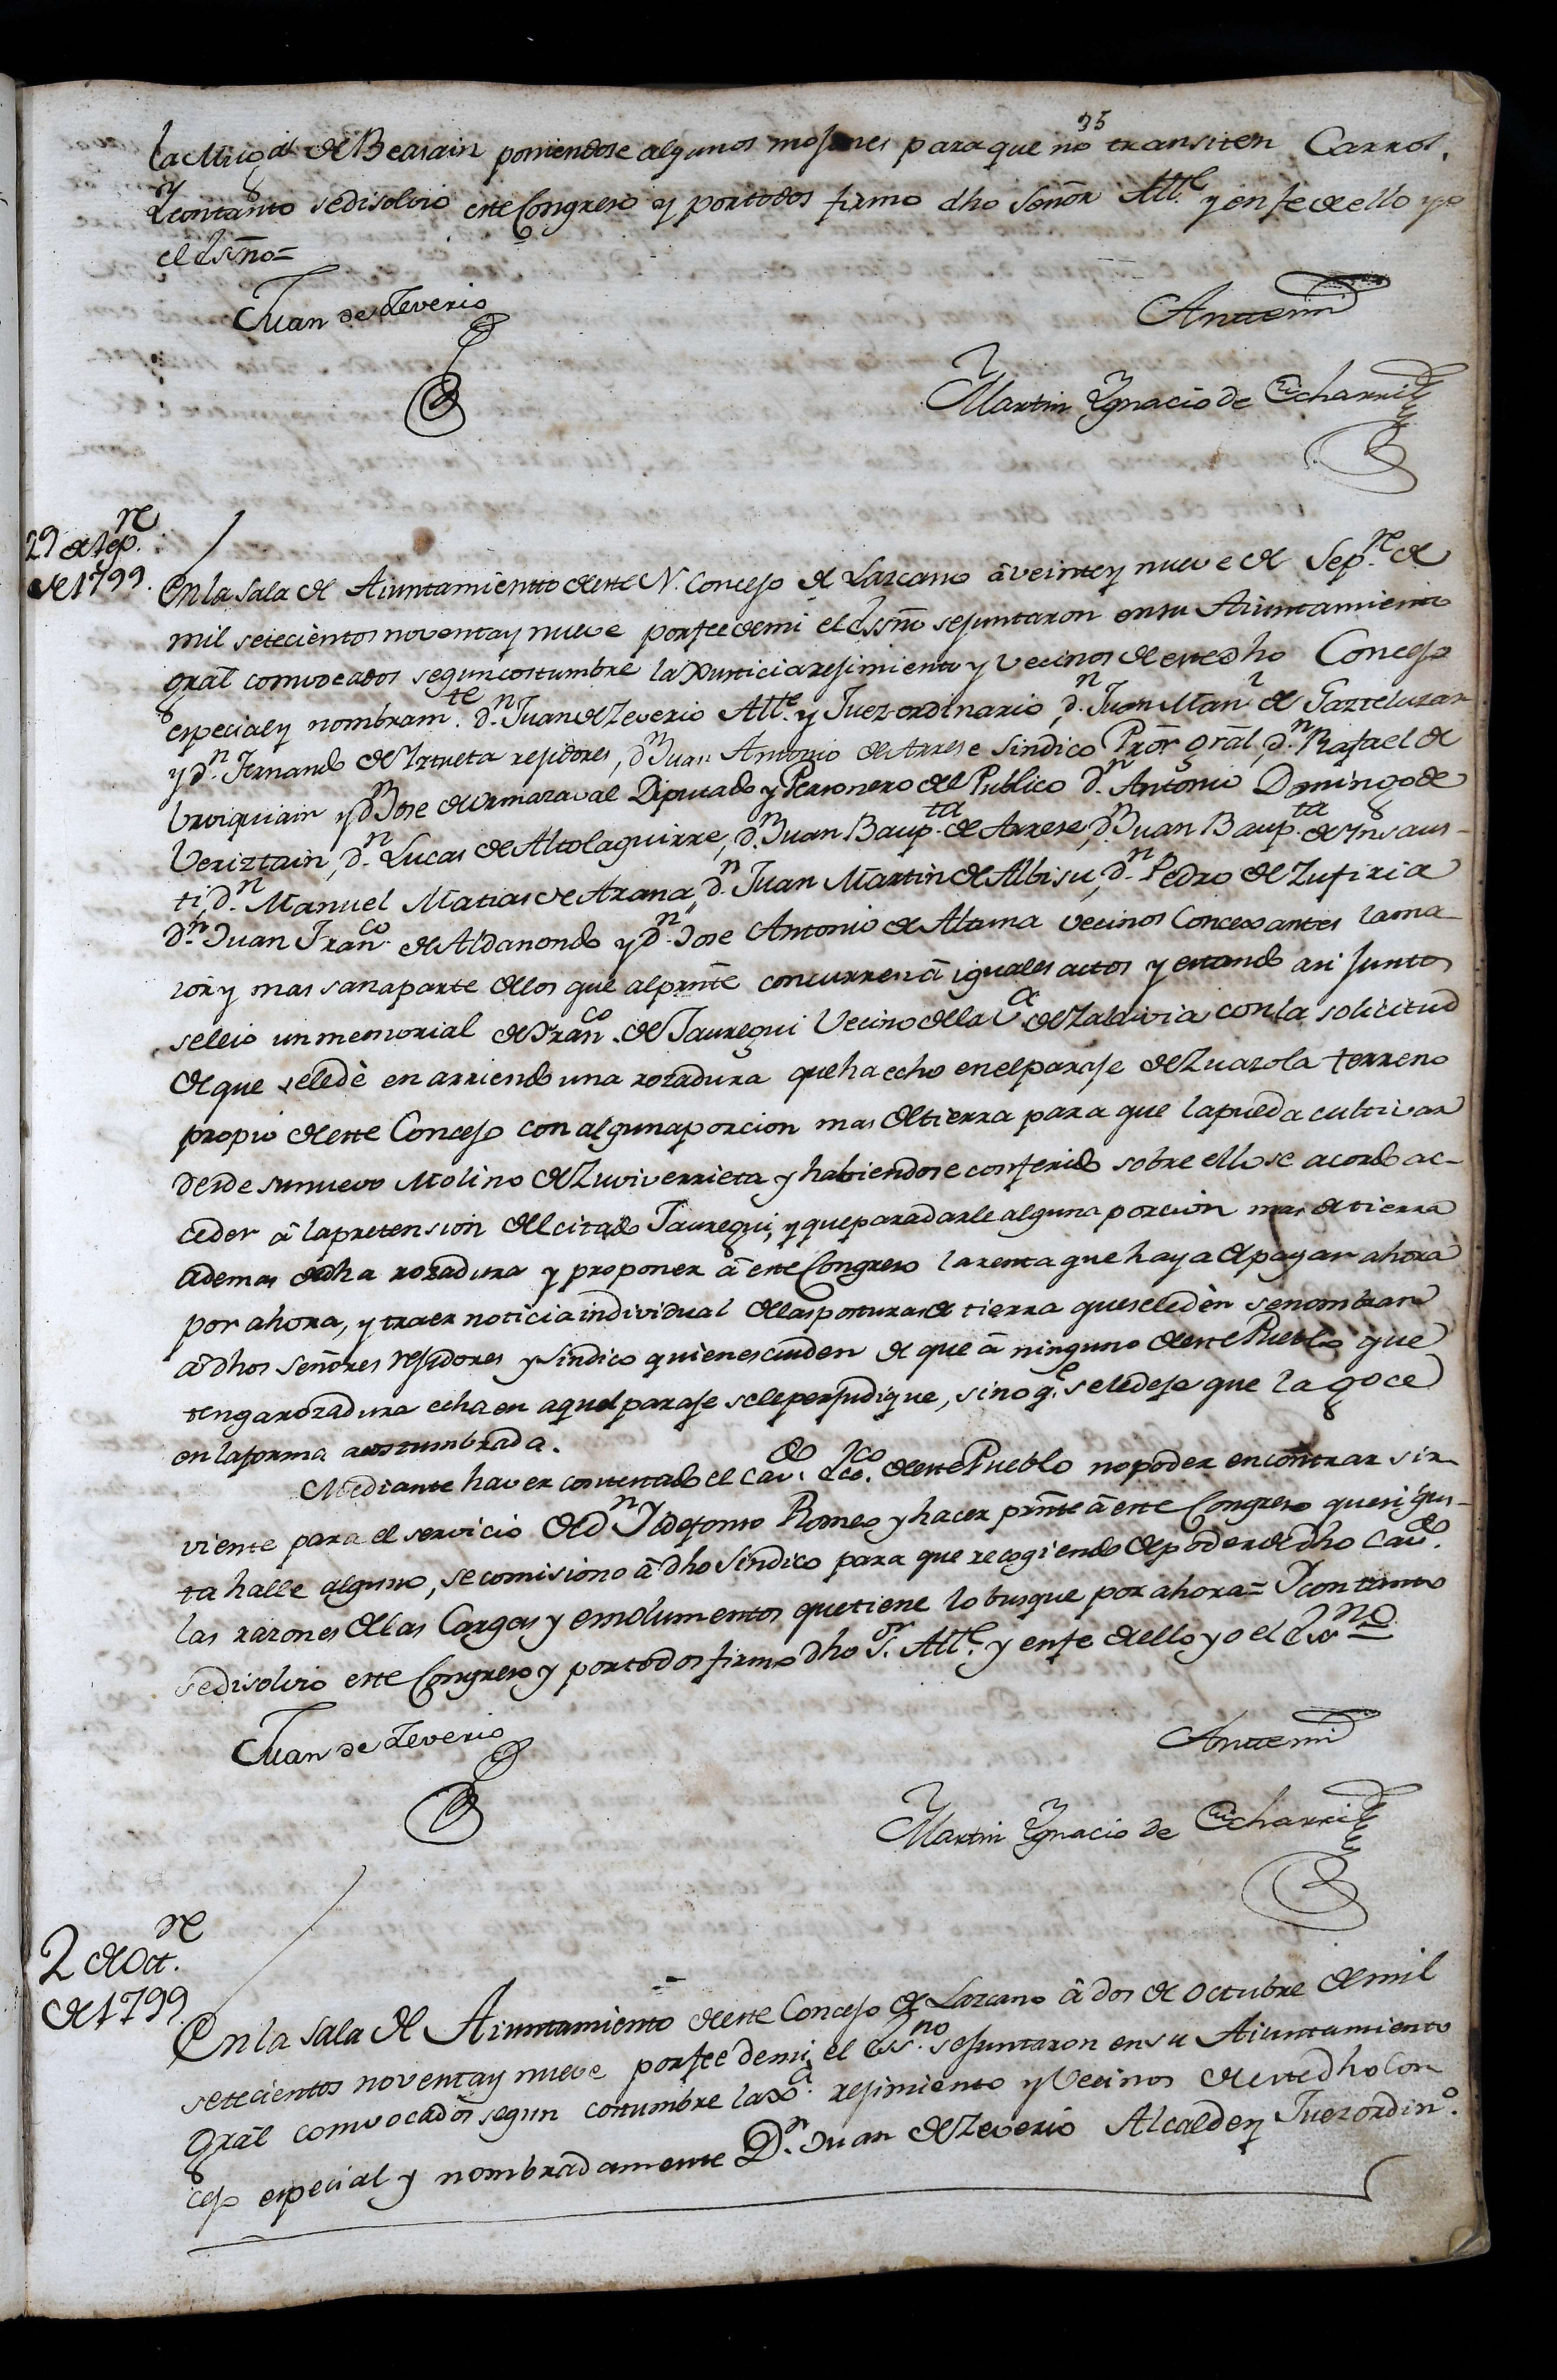 35
la Mug.al de Beasain poniendose algunos mojones para que no transiten Carros.
Y con tanto se disolvio este Congreso y por todos firmo dho Señor Alle. y en fe de ello yo
el Essno=
Juan de Zeverio
Ante mi
Martin Ygnacio de Echarri
29 de Sep.re
de 1799.
En la sala de Aiuntamientto de este N. Concejo de Lazcano â veinte y nueve de Sep.re de
mil setecientos noventa y nueve por fee de mi el Essno se juntaron en su Aiuntamiento
gral convocados segun costumbre la Xusticia rejimiento y Vecinos de este dho Concejo
especial y nombram.te d.n Juan de Zeverio Alle. y Juez ordinario, d.n Juan Man.l de Gazteluzar
y d.n Fernando de Yrtueta rejidores, d.n Juan Antonio de Arrese sindico Pror gral, d.n Rafael de
Urviquiain y d.n Jose de Ormazaval Diputado y Personero del Publico d.n Antonio Domingo de
Veriztain, d.n Lucas de Altolaguirre, d.n Juan Baup.ta de Arrese, d.n Juan Baup.ta de Ynsaus-
ti, d.n Manuel Matias de Arana, d.n Juan Martin de Albisu, d.n Pedro de Zufiria
d.n Juan Fran.co de Aldanondo y d.n Jose Antonio de Altuna vecinos Concexantes la ma-
ior y mas sana parte de los que al prnte concurren â iguales actos y estando asi juntos
se leio un memorial de Fran.co de Jauregui Vecino de la V.a de Zaldivia con la solicitud
de que se le dè en arriendo una rozadura que ha echo en el paraje de Zuazola terreno
propio de este Concejo con alguna porcion mas de tierra para que la pueda cultivar
desde su nuevo Molino de Zuviverrieta y habiendose conferido sobre ello se acordo ac-
ceder â la pretension del citado Jauregui, y que para darle alguna porcion mas de tierra
ademas de dha rozadura y proponer â este Congreso la renta que haya de pagar ahora
por ahora, y traer noticia individual de las posturas de tierra que se le dèn se nombran
â dhos señores rejidores y sindico quienes cuiden de que â ninguno de este Pueblo que
tenga rozadura echa en aquel paraje se le perjudique, sino q.e se le deje que la goce
en la forma acostumbrada.
Mediante haver contestado el Cav.do Ecco. de este Pueblo no poder encontrar sir-
viente para el servicio de d.n Yldefonso Romeo y hacer prnte â este Congreso que si gus-
ta halle alguno, se comisiono â dho Sindico para que recogiendo de poder de dho Cav.do
las razones de las Cargas y emolumentos que tiene lo busque por ahora= Y con tanto
se disolvio este Congreso y por todos firmo dho S.or Alle. y en fe de ello yo el Essno
Juan de Zeverio
Ante mi
Martin Ygnacio de Echarri
2 de Oct.re
de 1799
En la sala de Aiuntamiento de este Concejo de Lazcano â dos de Octubre de mil
setecientos noventa y nueve por fee de mi el Ess.no se juntaron en su Aiuntamiento
gral convocados segun costumbre la X.a rejimiento y Vecinos de este dho Con
cejo especial y nombradamente D.n Juan de Zeverio Alcalde y Juez ordin.o